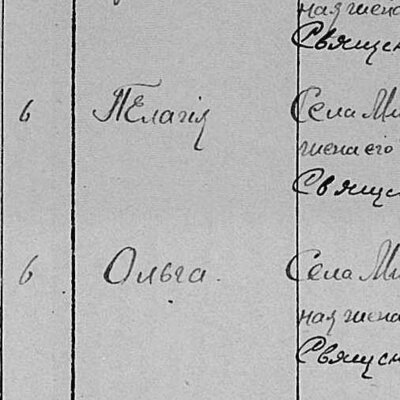 ная жена
Священ
6 Пелагія Села Ми
жена его
Священ
6 Ольга. Села Ми
ная жена
Священ